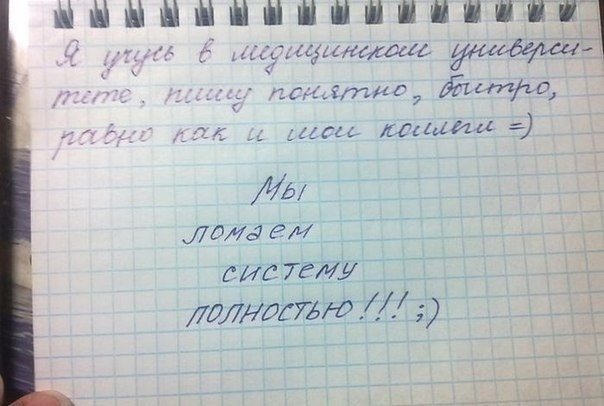 Я учусь в медицинском универси-
тете, пишу понятно, быстро,
равно как и мои коллеги =)
Мы
ломаем
систему
полностью!!! ;)